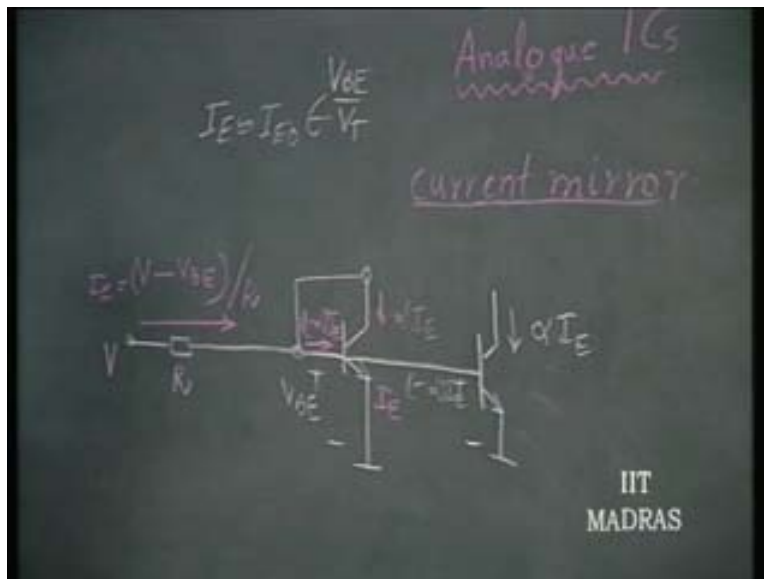 Analogue ICs
I_E = I_EO ε^(V_BE/V_T)
current mirror
I_E = (V – V_BE)/R
V
R
V_BE
(1-α)I_E
↓ αI_E
I_E
(1-α)I_E
↓ αI_E
IIT
MADRAS